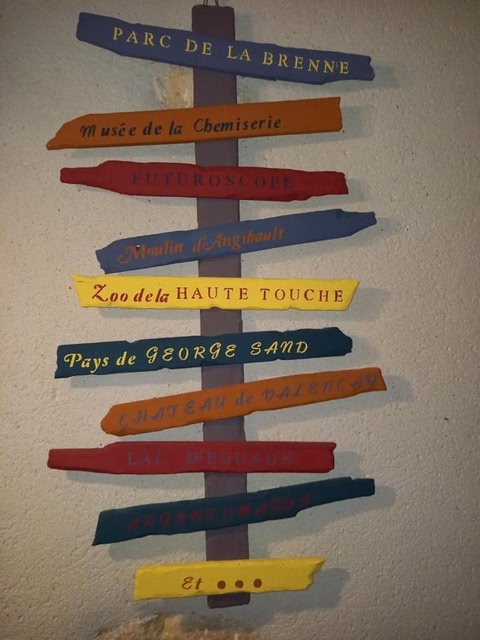 PARC DE LA BRENNE
Musée de la Chemiserie
FUTUROSCOPE
Moulin d'Angibault
Zoo de la HAUTE TOUCHE
Pays de GEORGE SAND
CHATEAU de VALENCAY
LAC D'EGUSON
ARGENTOMAGUS
Et ...